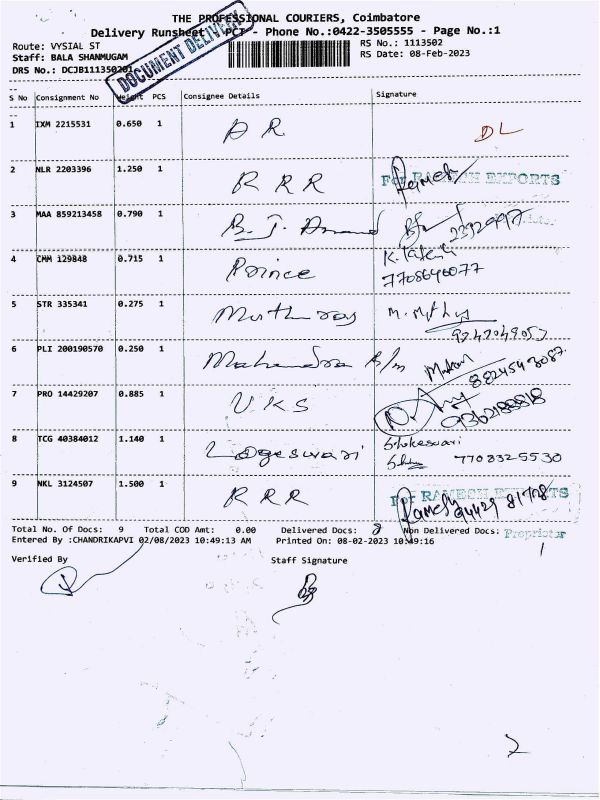 THE PROFESSIONAL COURIERS, Coimbatore
Delivery Runsheet PCT - Phone No.:0422-3505555 - Page No.:1
DOCUMENT DELIVERY
Route: VYSIAL ST RS No.: 1113502
Staff: BALA SHANMUGAM RS Date: 08-Feb-2023
DRS No.: DCJB111350201
S No Consignment No Weight PCS Consignee Details Signature
1 IXM 2215531 0.650 1 DR DL
2 NLR 2203396 1.250 1 RRR For RAMESH EXPORTS
Ramesh
3 MAA 859213458 0.790 1 B. J. Anand
4 CMM 129848 0.715 1 Prince
7708646077
5 STR 335341 0.275 1 Muthuraj
6 PLI 200190570 0.250 1 Mahendra
7 PRO 14429207 0.885 1 UKS
8 TCG 40384012 1.140 1 Logeswari
7708325530
9 NKL 3124507 1.500 1 RRR For RAMESH EXPORTS
Ramesh
Proprietor
Total No. Of Docs: 9 Total COD Amt: 0.00 Delivered Docs: 8 Non Delivered Docs: 1
Entered By :CHANDRIKAPVI 02/08/2023 10:49:13 AM Printed On: 08-02-2023 10:49:16
Verified By Staff Signature